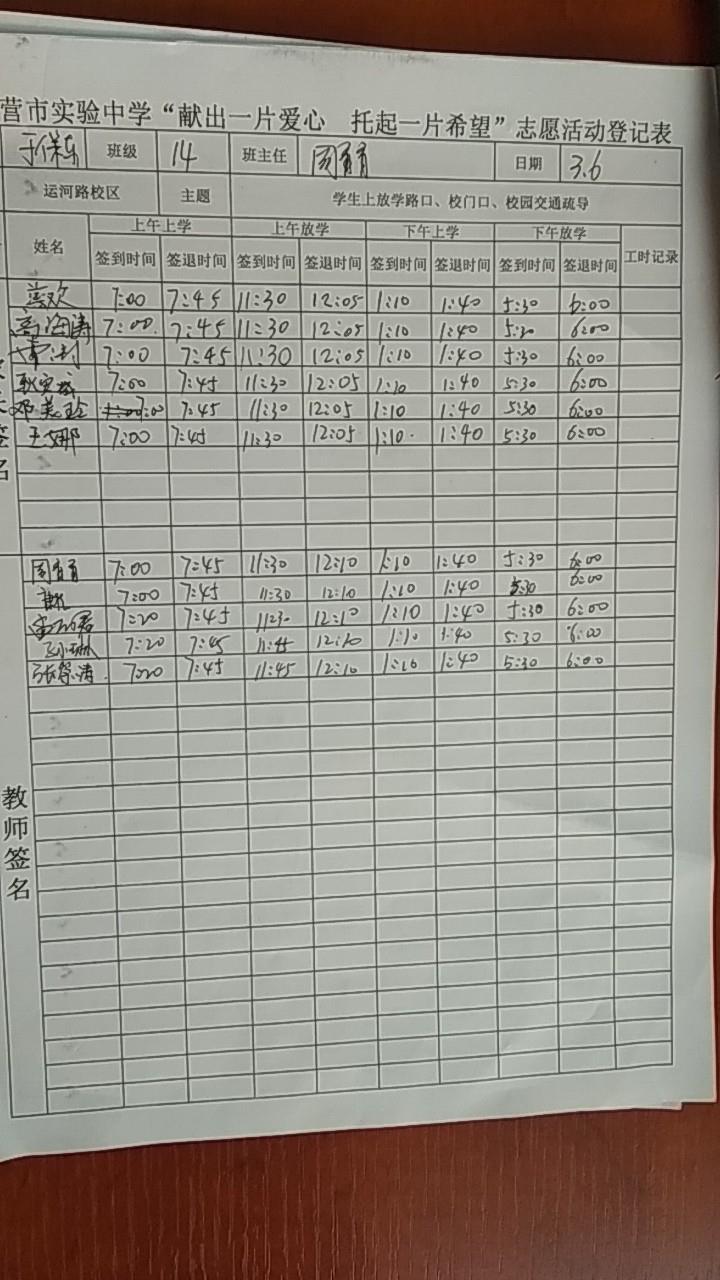 营市实验中学“献出一片爱心 托起一片希望”志愿活动登记表
班级 14 班主任 日期 3.6
运河路校区 主题 学生上放学路口、校门口、校园交通疏导
姓名 上午上学 上午放学 下午上学 下午放学 工时记录
签到时间 签退时间 签到时间 签退时间 签到时间 签退时间 签到时间 签退时间
7:00 7:45 11:30 12:05 1:10 1:40 5:30 6:00
高海涛 7:00 7:45 11:30 12:05 1:10 1:40 5:30 6:00
7:00 7:45 11:30 12:05 1:10 1:40 5:30 6:00
7:00 7:45 11:30 12:05 1:10 1:40 5:30 6:00
邓美玲 7:00 7:45 11:30 12:05 1:10 1:40 5:30 6:00
王娜 7:00 7:45 11:30 12:05 1:10 1:40 5:30 6:00
签
名
7:00 7:45 11:30 12:10 1:10 1:40 5:30 6:00
7:00 7:45 11:30 12:10 1:10 1:40 5:30 6:00
7:20 7:45 11:30 12:10 1:10 1:40 5:30 6:00
7:20 7:45 11:45 12:10 1:10 1:40 5:30 6:00
7:20 7:45 11:45 12:10 1:10 1:40 5:30 6:00
教
师
签
名